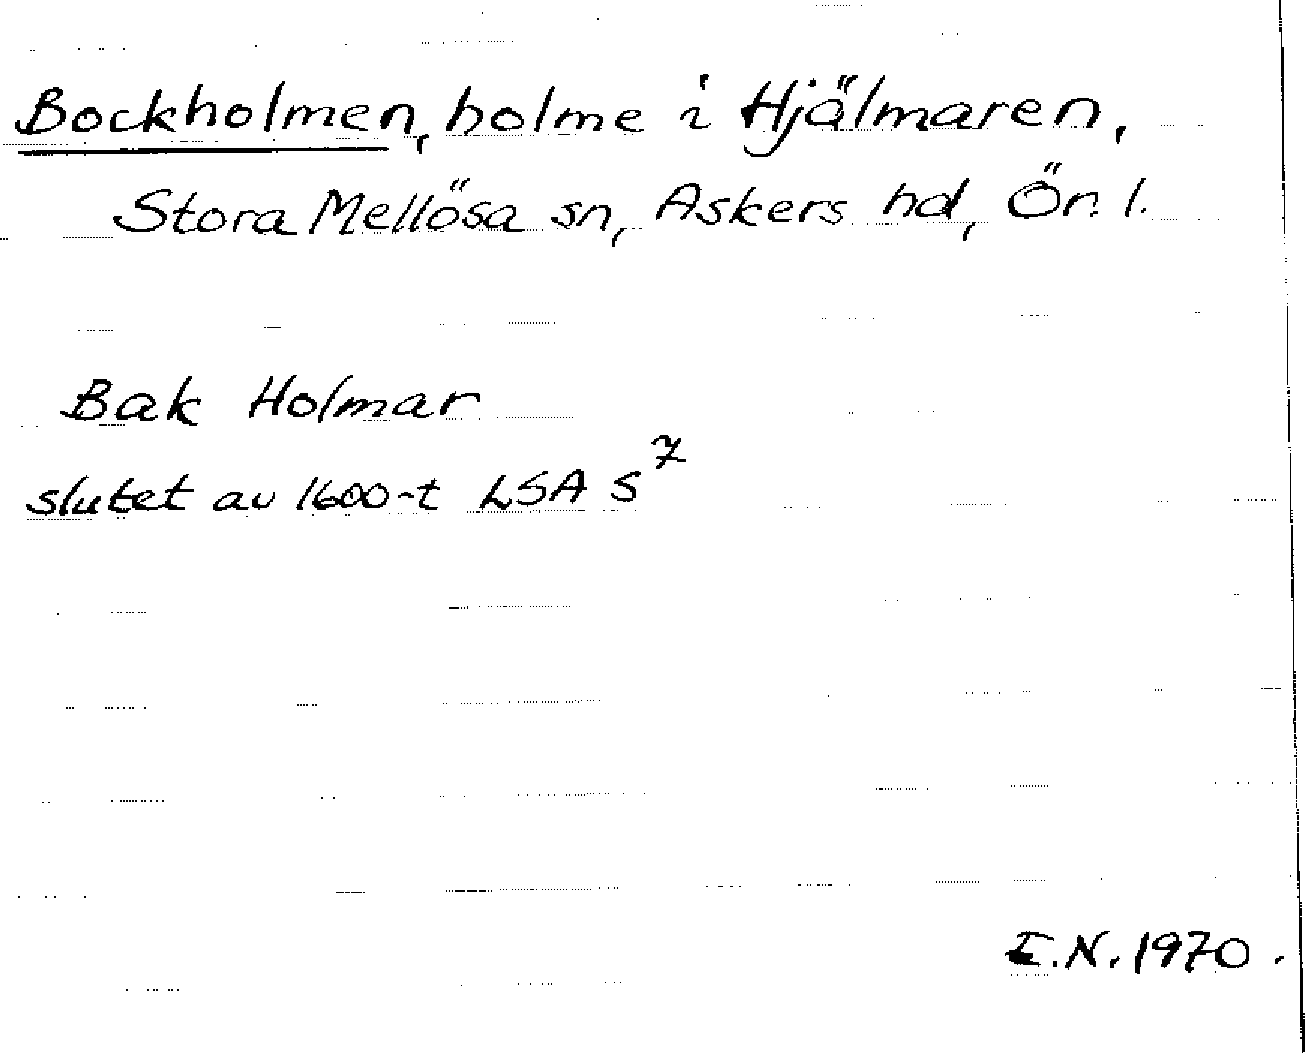 Bockholmen, holme i Hjälmaren,
Stora Mellösa sn, Askers hd, Ör. l.
Bak Holmar
slutet av 1600-t LSA S⁷
I.N. 1970.